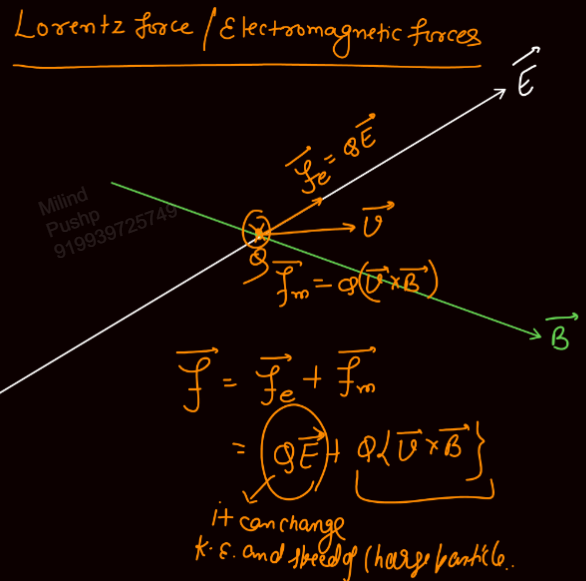 Lorentz force / Electromagnetic forces
E
fe = QE
Milind
Pushp
919939725749
v
Q
fm = Q(v×B)
B
f = fe + fm
= QE + Q{v×B}
it can change
K.E. and speed of charge particle..